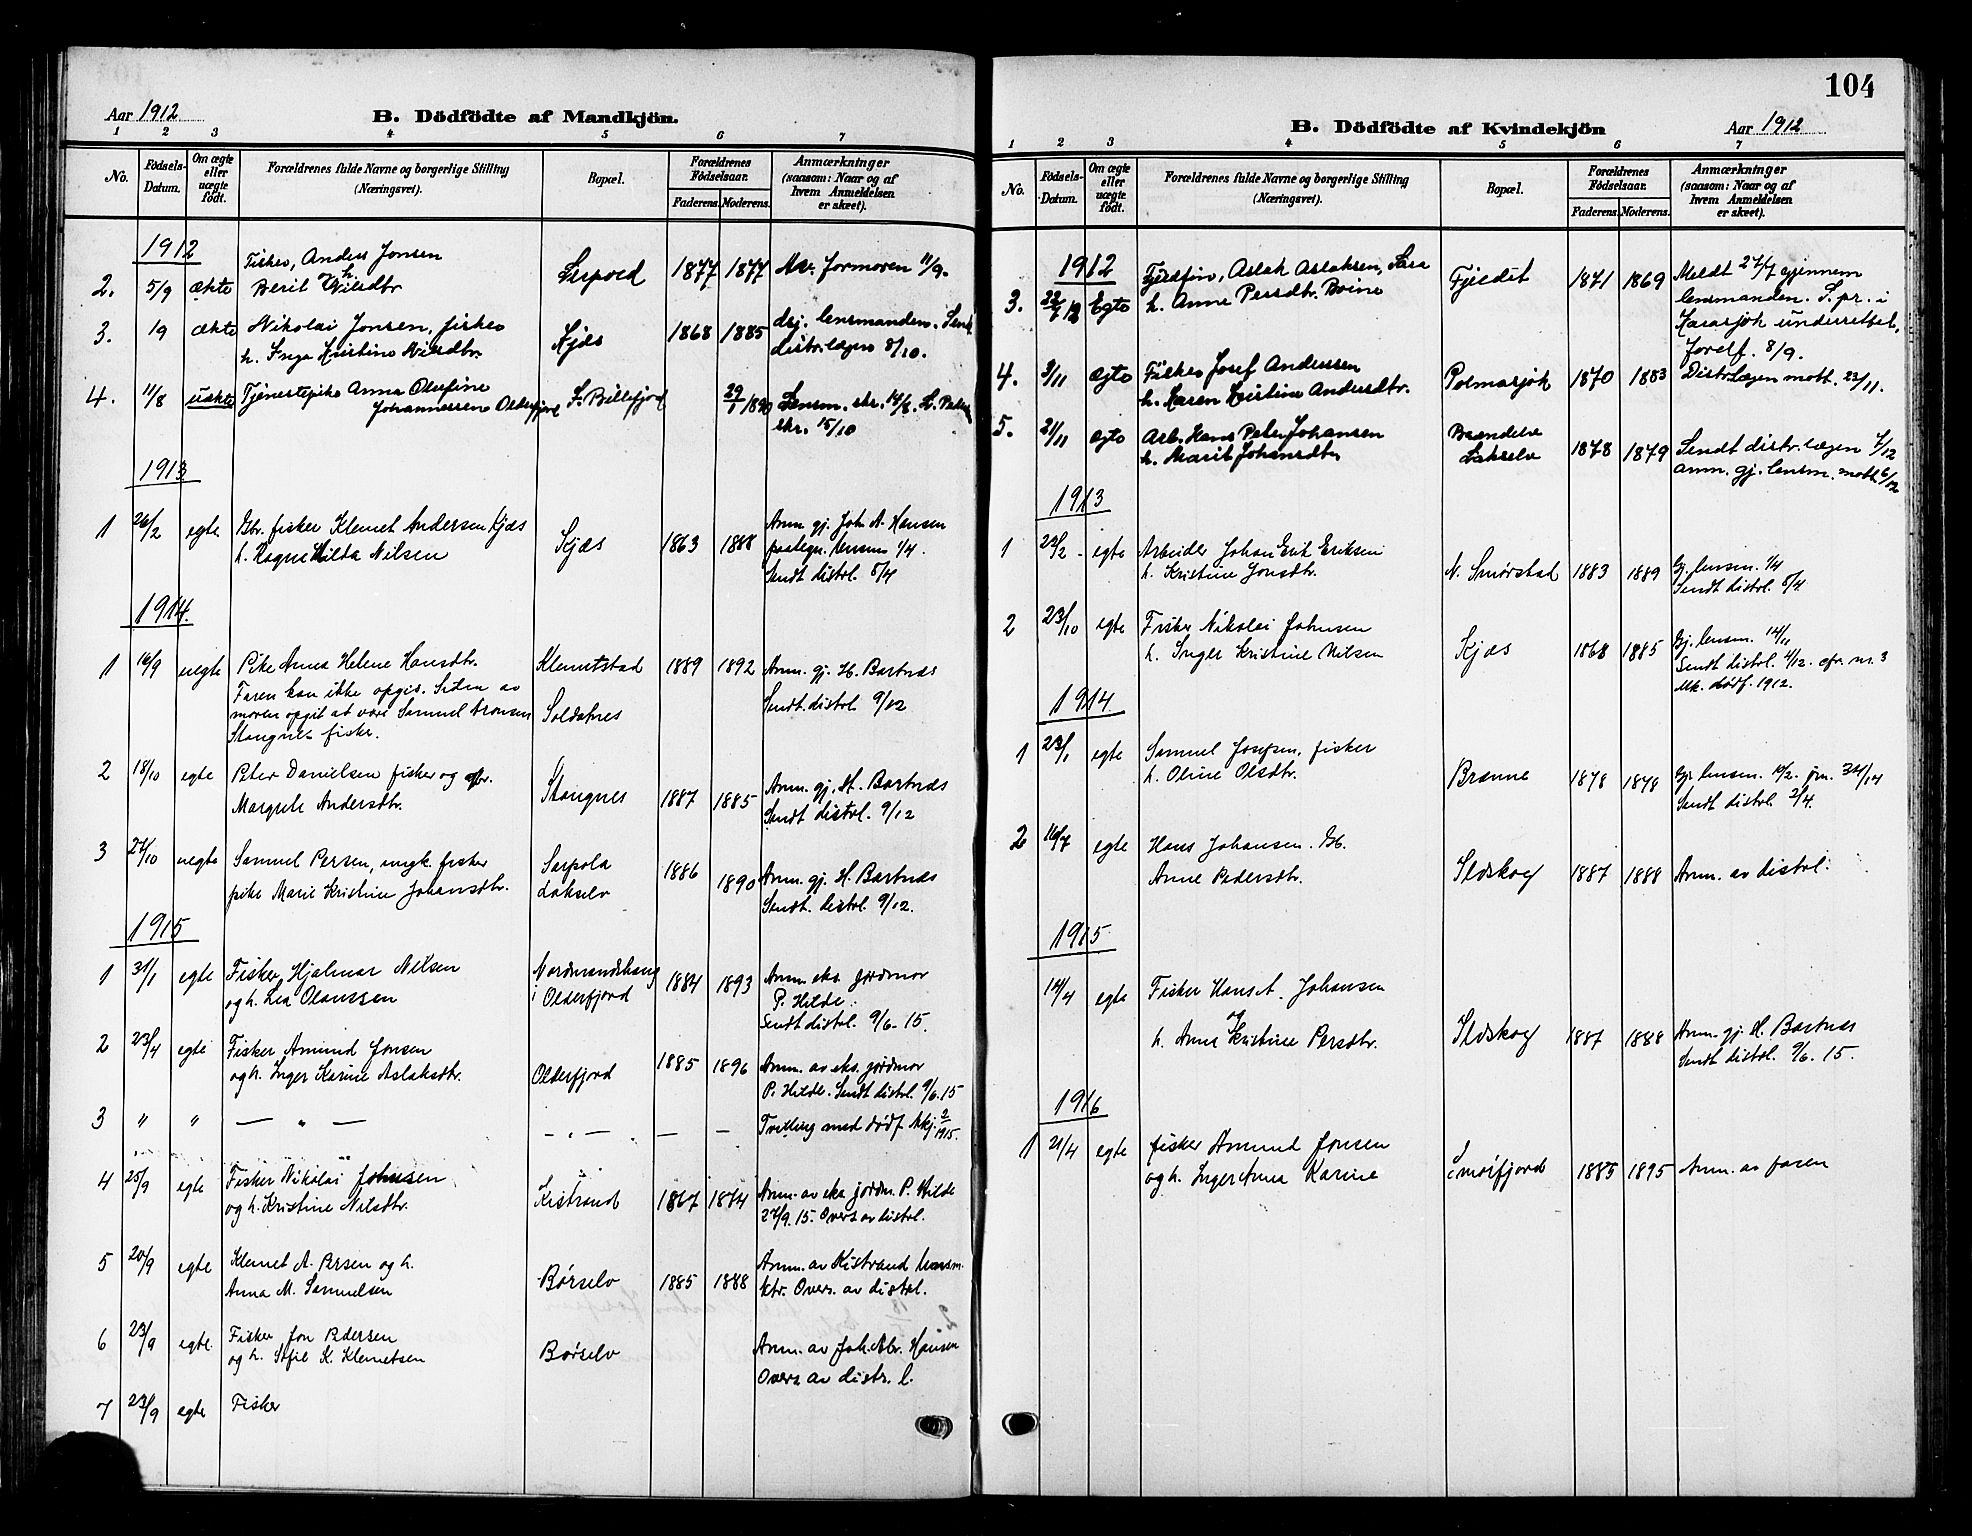 Aar 1912
B. Dödfödte af Mandkjön.
1 2 3 4 5 6 7
No.
Födsels-Datum.
Om ægte eller uægte födt.
Forældrenes fulde Navne og borgerlige Stilling
(Næringsvet).
Bopæl.
Forældrenes Födselsaar.
Faderens. Moderens.
Anmærkninger
(saasom: Naar og af
hvem Anmeldelsen
er skeet).
1912
Fisker, Anders Jonsen
2. 5/9 ækte Berit Nilsdtr 1877 1877 formoren 11/9.
3. 19 ækte Nikolai Jonsen, fisker Kjæs 1868 1885 lensmanden. Sendt
h. Inga Kristine Nilsdtr. distr.lægen 8/10.
4. 11/8 uækte Tjenestepike Anna Olufine
Johannessen Olderfjord S. Billefjord 29/1 1890 Lensm. skr. 14/8.
skr. 15/10
1913
1 26/2 egte Gbr. fisker Klemet Andersen Kjæs Kjæs 1863 1888 Anm. gj. Joh. A. Hansen
h. Hilda Nilsen lensm 1/4.
Sendt distrl. 5/4
1914.
1 16/9 uegte Pike Anna Helene Hansdtr. Klemetstad 1889 1892 Anm. gj. H. Bartnæs
Faren kan ikke opgis. Siden av
moren opgit at være Samuel Aronsen Soldatnes Sendt distrl. 9/12
Stangnes fisker.
2 18/10 egte Peter Danielsen fisker og gbr. Stangnes 1887 1885 Anm. gj. H. Bartnæs
Margrete Andersdtr. Sendt distrl. 9/12
3 27/10 uegte Samuel Persen, ungk. fisker Sarpola 1886 1890 Anm. gj. H. Bartnæs
pike Marie Kristine Johansdtr. Lakselv Sendt. distrl. 9/12.
1915
1 31/1 egte Fisker, Hjalmar Nilsen 1884 1893 Anm. eks. jordmor
og h. Lea Olaussen i Olderfjord P. Hilde.
Sendt distrl. 9/6-15.
2 23/4 egte Fisker Amund Jonsen Olderfjord 1885 1896 Anm. av eks. jordmor
og h. Inger Karine Aslaksdtr. P. Hilde. Sendt distrl. 9/6.15
3 " " — " — — " — — — Tvilling med dødf. Mkj. 2/1915.
4 25/9 egte Fisker Nikolai Johnsen Kistrand 1867 1874 Anm. av eks jordm. P. Hilde
og h. Kristine Nilsdtr. 27/9. 15. Overs av distrl.
5 20/9 egte Klemet A. Persen og h. Børselv 1885 1888 Anm. av Kistrand lensm.
Anna M. Samuelsen ktr. Overs. av distrl.
6 23/9 egte. Fisker Jon Pedersen Børselv Anm. av Joh. Alr. Hansen
og h. Sofie K. Klemetsen Overs av distr. l.
7 23/9 egte Fisker
104
B. Dödfödte af Kvindekjön
Aar 1912
1 2 3 4 5 6 7
No.
Födsels-Datum.
Om ægte eller uægte födt.
Forældrenes fulde Navne og borgerlige Stilling
(Næringsvet).
Bopæl.
Forældrenes Födselsaar.
Faderens. Moderens.
Anmærkninger
(saasom: Naar og af
hvem Anmeldelsen
er skeet).
1912
3. Egte Fjeldfin, Aslak Aslaksen, Sara Fjeldet 1871 1869 Meldt 27/7 gjennem
h. Anne Persdtr. lensmanden. S. pr. i
Karasjok underrettet,
8/9.
4. 3/11 Ægte Fisker Josef Anderssen 1870 1883 Distr.lægen mott. 23/11.
h. Karen Kristine Andersdtr.
5. 21/11 ægte Arb. Hans Peter Johansen Brændelv 1878 1879 Sendt distr. lægen 7/12
h. Marit Johansdtr Lakselv anm. gj. lensm. mott. 6/12
1913
1 egte Arbeider Johan Erik Eriksen N. Smørstad 1883 1889 Gj. lensm. 1/4
h. Kristine Jonsdtr. Sendt distrl. 5/4
2 23/10 egte Fisker Nikolai Johnsen Kjæs 1868 1885 Gj. lensm. 14/11
h. Inger Kristine Nilsen Sendt distrl. 4/12. cfr. nr. 3
Mk. dødf. 1912.
1914
1 23/1 egte Samuel Josefsen, fisker Brænne 1878 1878 Gj. lensm.
h. Oline Olsdtr. Sendt distrl. 2/4.
2 16/7 egte Hans Johansen. Gb. Ildskog 1887 1888 Anm. av distrl.
Anne Pedersdtr.
1915
14/4 egte Fisker Hans A. Johansen
og
h. Anna Kristine Persdtr. Ildskog 1887 1888 Anm. gj. H. Bartnæs
Sendt distrl. 9/6. 15.
1916
1 21/4 egte fisker Amund Jonsen Smørfjord 1885 1895 Anm. av faren
og h. Inger Anna Karine